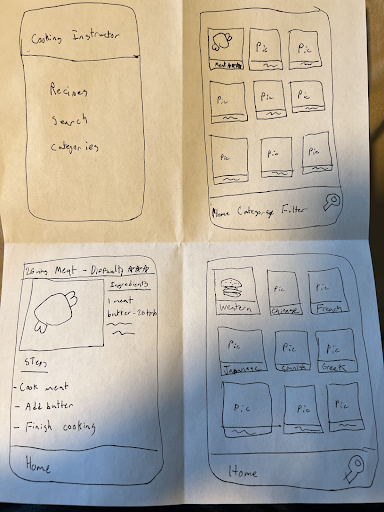 Cooking Instructor
Recipes
Search
Categories
Meat ☆☆☆
Pic
Pic
Pic
Pic
Pic
Pic
Pic
Pic
Home Categories Filter
Meat - Difficulty ☆☆☆
Ingredients
1 meat
butter - 20
Steps
- Cook meat
- Add butter
- Finish cooking
Home
Pic
Pic
Western
Chinese
French
Pic
Pic
Pic
Japanese
Greek
Pic
Pic
Pic
Home